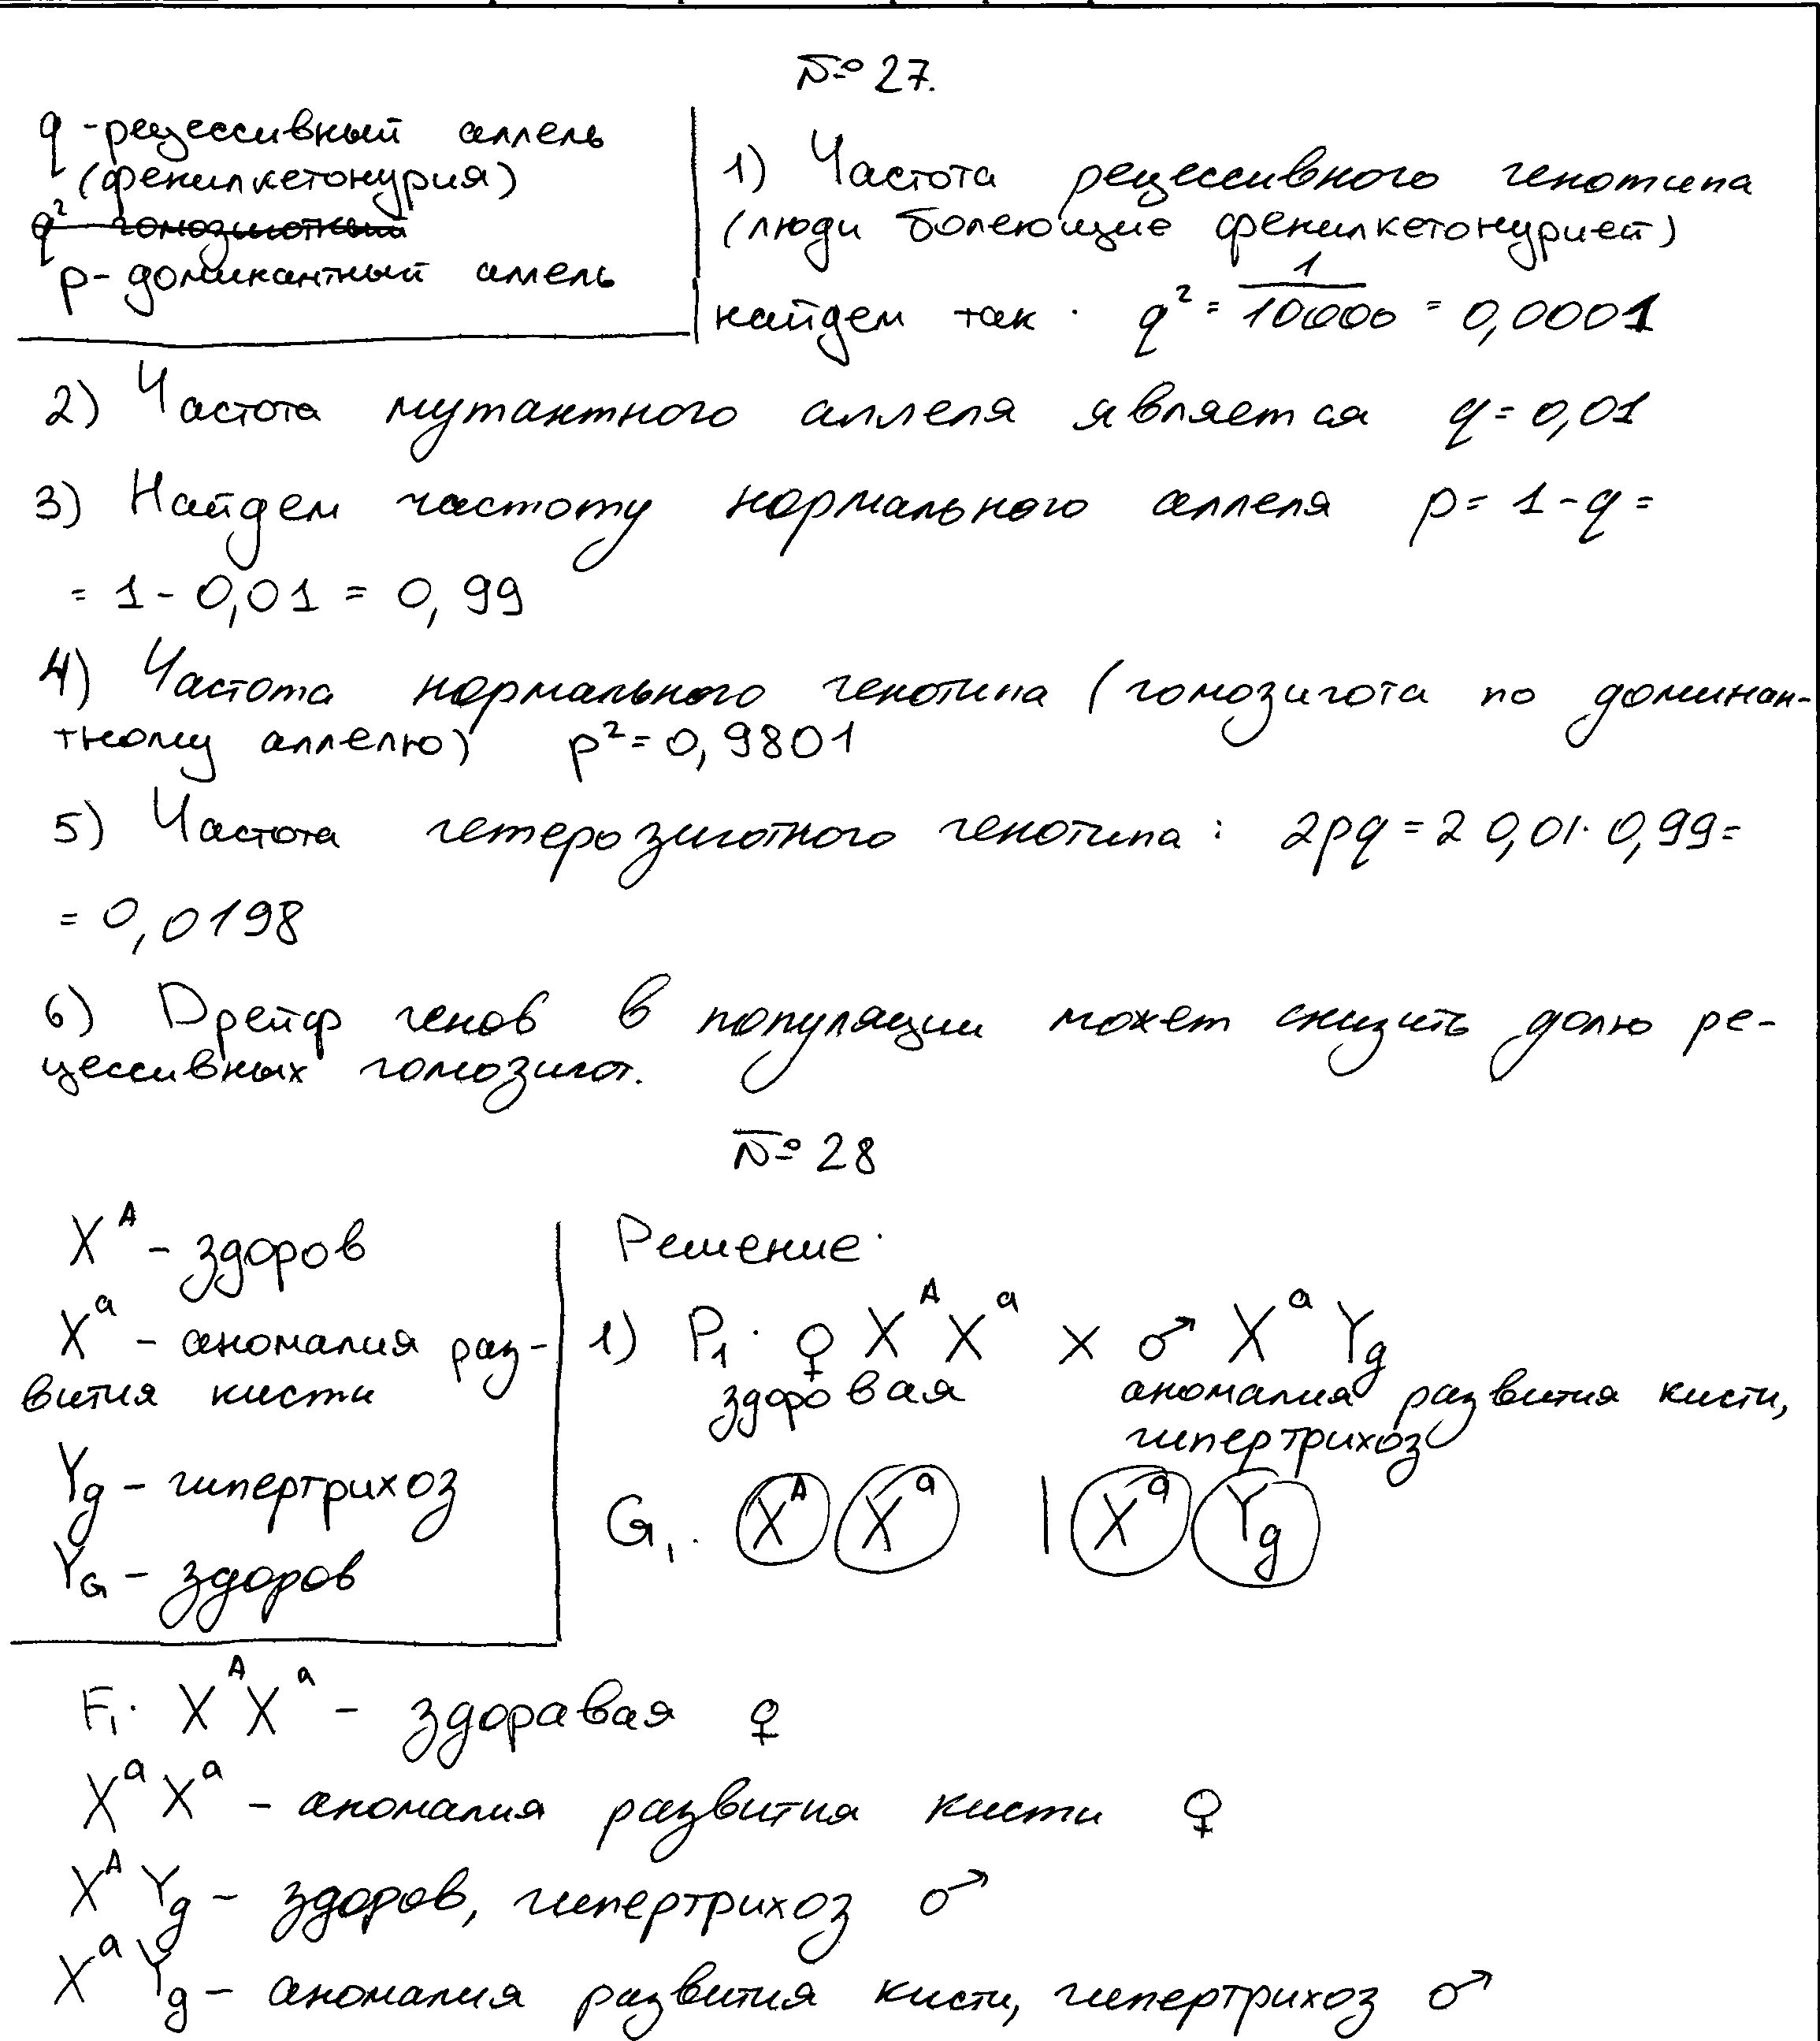 № 27.
q - рецессивный аллель
(фенилкетонурия)
q² гомозиготный
p - доминантный аллель
1) Частота рецессивного генотипа
(люди болеющие фенилкетонурией)
найдем так: q² = 1/10000 = 0,0001
2) Частота мутантного аллеля является q = 0,01
3) Найдем частоту нормального аллеля p = 1 - q =
= 1 - 0,01 = 0,99
4) Частота нормального генотипа (гомозигота по доминан-
тному аллелю) p² = 0,9801
5) Частота гетерозиготного генотипа: 2pq = 2 0,01 · 0,99 =
= 0,0198
6) Дрейф генов в популяции может снизить долю ре-
цессивных гомозигот.
№ 28
X^A - здоров
X^a - аномалия раз-
вития кисти
Y_g - гипертрихоз
Y_G - здоров
Решение:
1) P₁: ♀ X^A X^a × ♂ X^a Y_g
здоровая аномалия развития кисти,
гипертрихоз
G₁: X^A X^a | X^a Y_g
F₁: X^A X^a - здаравая ♀
X^a X^a - аномалия развития кисти ♀
X^A Y_g - здоров, гипертрихоз ♂
X^a Y_g - аномалия развития кисти, гипертрихоз ♂